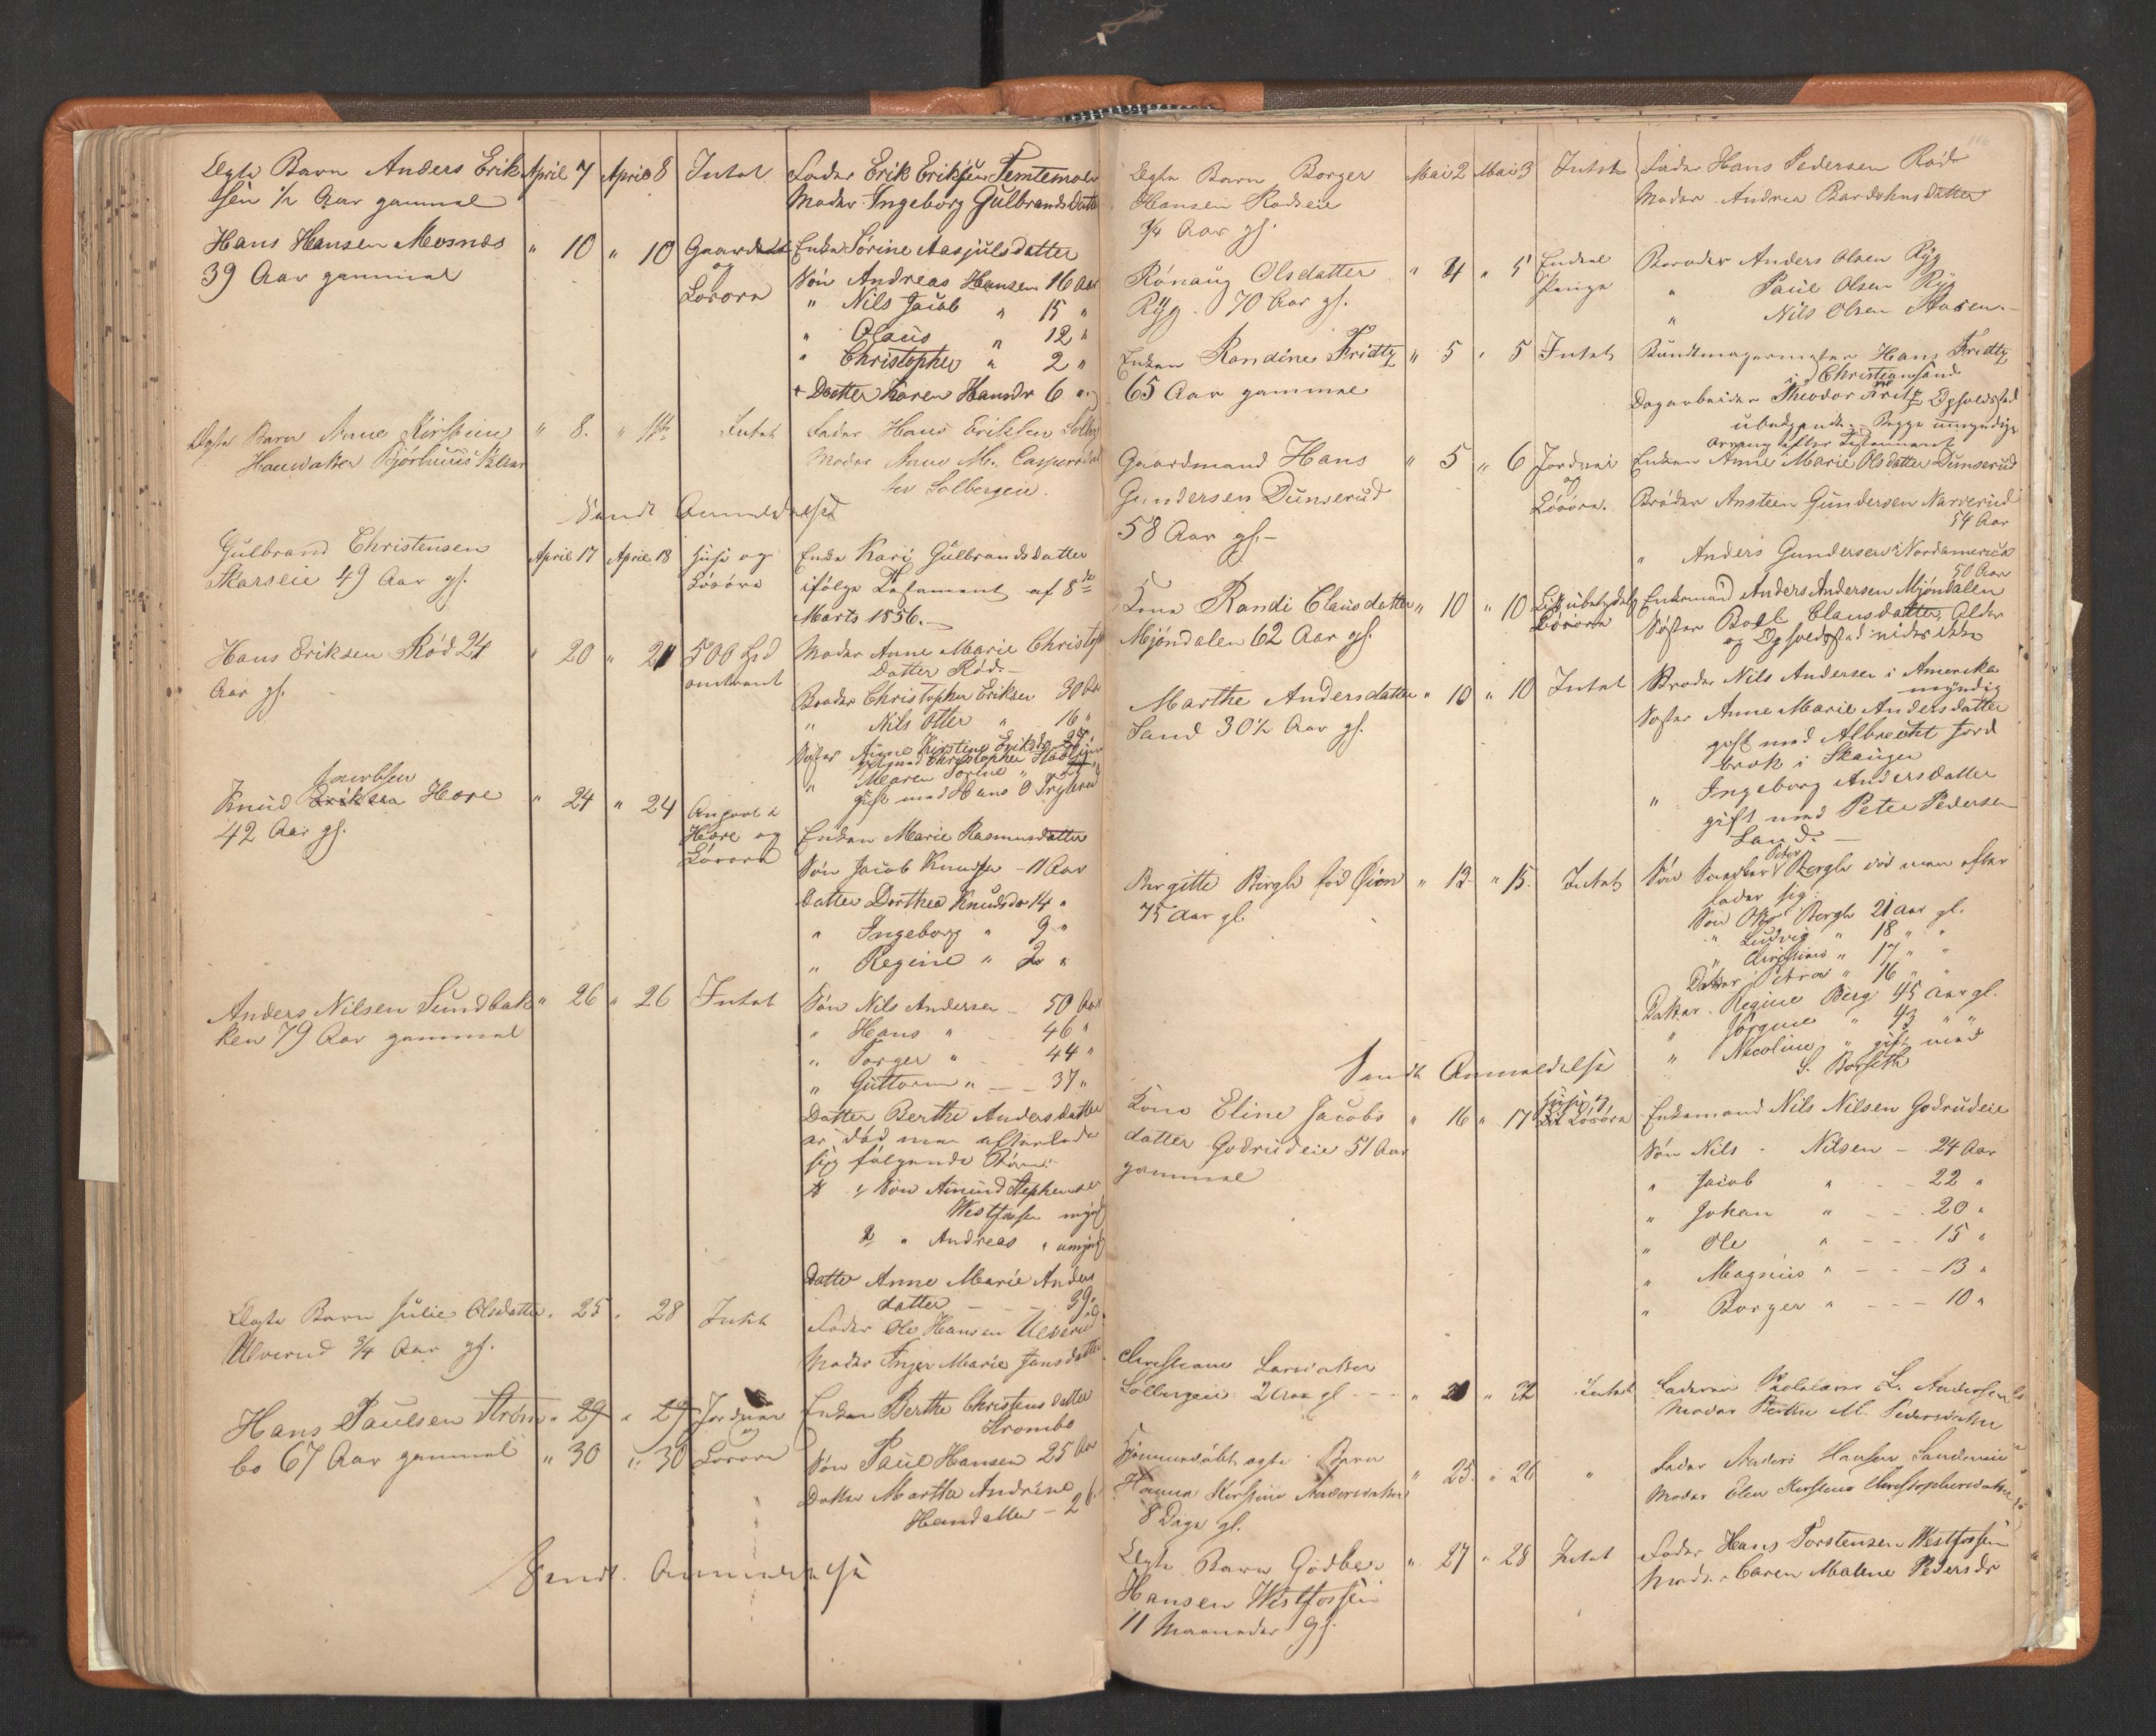 Ægte Barn Anders Erik April 7 April 8 Intet Fader Erik Eriksen Temtemoen
sen ½ Aar gammel Moder Ingeborg Gulbrandsdatt
Hans Hansen Mosnæs " 10 " 10 Gaardedl Enke Sørine Aasjulsdatter
39 Aar gammel og Søn Andreas Hansen 16 Aar
Løsøre " Nils Jacob " 15 "
" Olaus " 12 "
" Christopher " 2 "
+ Datter Karen Hansdr 6 "
Ægte Barn Anne Kirstine " 8. " Intet Fader Hans Eriksen Solb
Hansdatter Moder Anne M. Caspersdat
ter Solbergeie.
Sendt Anmeldelse
Gulbrand Christensen April 17 April 18 Huse og Enke Kari Gulbrandsdatter
Skarseie 49 Aar gl. Løsøre ifølge Testament af 8de
Marts 1856.
Hans Eriksen Rød 24 " 20 " 21 500 Spd Moder Anne Marie Christop
Aar gl. omtrent Datter Rød.
Broder Christopher Eriksen 30 Aar
" Nils Otter " 16 "
Søster Anne Kirstine Eriksdr
gift med Christopher
" Maren Sørine "
gift med Hans O
Jacobsen
Knud Eriksen Hære " 24 " 24 Anpart i
42 Aar gl. Hære og Enken Marie Rasmusdatter
Løsøre Søn Jacob Knudsen - 11 Aar
Datter Dorthea Knudsdr 14 "
" Ingeborg " 9 "
" Regine " 2 "
Anders Nilsen Sundbak " 26 " 26 Intet Søn Nils Andersen 50 Aar
ken 79 Aar gammel " Hans " 46 "
" Torger " 44 "
" Guttorm " 37 "
Datter Berthe Andersdatter
er død men efterlader
sig følgende Børn:
1 Søn Amund Stephensen
Westfossen mynd
2 " Andreas " umynd
Datter Anne Marie Anders
datter 39
Ægte Barn Julie Olsdatter " 25 " 28 Intet Fader Ole Hansen Ulverud
Ulverud ¾ Aar gl. Moder Inger Marie Jansdatter
Hans Paulsen Strøm " 29 " 29 Jordvei Enken Berthe Christensdatter
og Strømbo
bo 67 Aar gammel " 30 " 30 Løsøre Søn Paul Hansen 25 Aar
Datter Marthe Andrine
Hansdatter - 2
Sendt Anmeldelse
Ægte Barn Borger Mai 2 Mai 3 Intet Fader Hans Pedersen Rød
Hansen Rødseie Moder Andrea Bardohnsdatter
¾ Aar gl.
Rønaug Olsdatter " 4 " 5 Endeel Broder Anders Olsen Ryg
Ryg. 70 Aar gl. Penge " Paul Olsen Ryg
" Nils Olsen
Enken Randine Fridtz " 5 " 5 Intet Bundtmagermester Hans Fridtz
65 Aar gammel i Christiansand
Dagarbeider Theodor Fritz Opholdsted
ubekjendt. Begge umyndige
Arving efter Testament
Gaardmand Hans " 5 " 6 Jordvei Enken Anne Marie Olsdatter Dunserud
Gundersen Dunserud og
Løsøre. Brøder Ansteen Gundersen Narverud
58 Aar gl. - 54 Aar
" Anders Gundersen i Nordamerica
50 Aar
Kone Randi Clausdatter " 10 " 10 Lidt ubetydelig Enkemand Anders Andersen Mjøndalen
Mjøndalen 62 Aar gl. Løsøre Søster Boel Clausdatter, Alder
og Opholdsted vides ikke
Marthe Andersdatter " 10 " 10 Intet Broder Nils Andersen i Amerika
myndig
Sand 30½ Aar gl. Søster Anne Marie Andersdatter
gift med Albrecht Jord
bræk i Skauger
" Ingeborg Andersdatter
gift med Peter Pedersen
Sand.
Birgitte Bergh fød Øien " 13 " 15. Intet Søn Peter Bergh død men efter
75 Aar gl. lader sig
Søn Bergh 21 Aar gl.
" Ludvig " 18 " "
" Christian " 17 " "
Datter Petra " 16 " "
Datter Regine Berg 45 Aar gl.
" Jørgine " 43 " "
" Nicoline " gift med
Sendt Anmeldelse
Huse og
Kone Eline Jacobs " 16 " 17 Lidt Løsøre Enkemand Nils Nilsen Godrudeie
datter Godrudeie 51 Aar Søn Nils - Nilsen - 24 Aar
gammel " Jacob " 22 "
" Johan " 20 "
" Ole " 15 "
" Magnus " 13 "
" Borger " 10 "
Christiane Larsdatter
Solbergeie 2 Aar gl. " " 22 Intet Faderen L. Andersen
Moder Berthe M. Pedersdatter
Hjemmedøbt ægte Barn " 25 " 26 " Fader Anders Hansen
Hanna Kirstine Andersdatter Moder Elen Kirstine Christophersdatter
8 Dage gl.
Ægte Barn Godber " 27 " 28 Intet Fader Hans Torstensen Westfossen
Hansen Westfossen Moder Caren Malene Pedersdr
11 Maaneder gl.